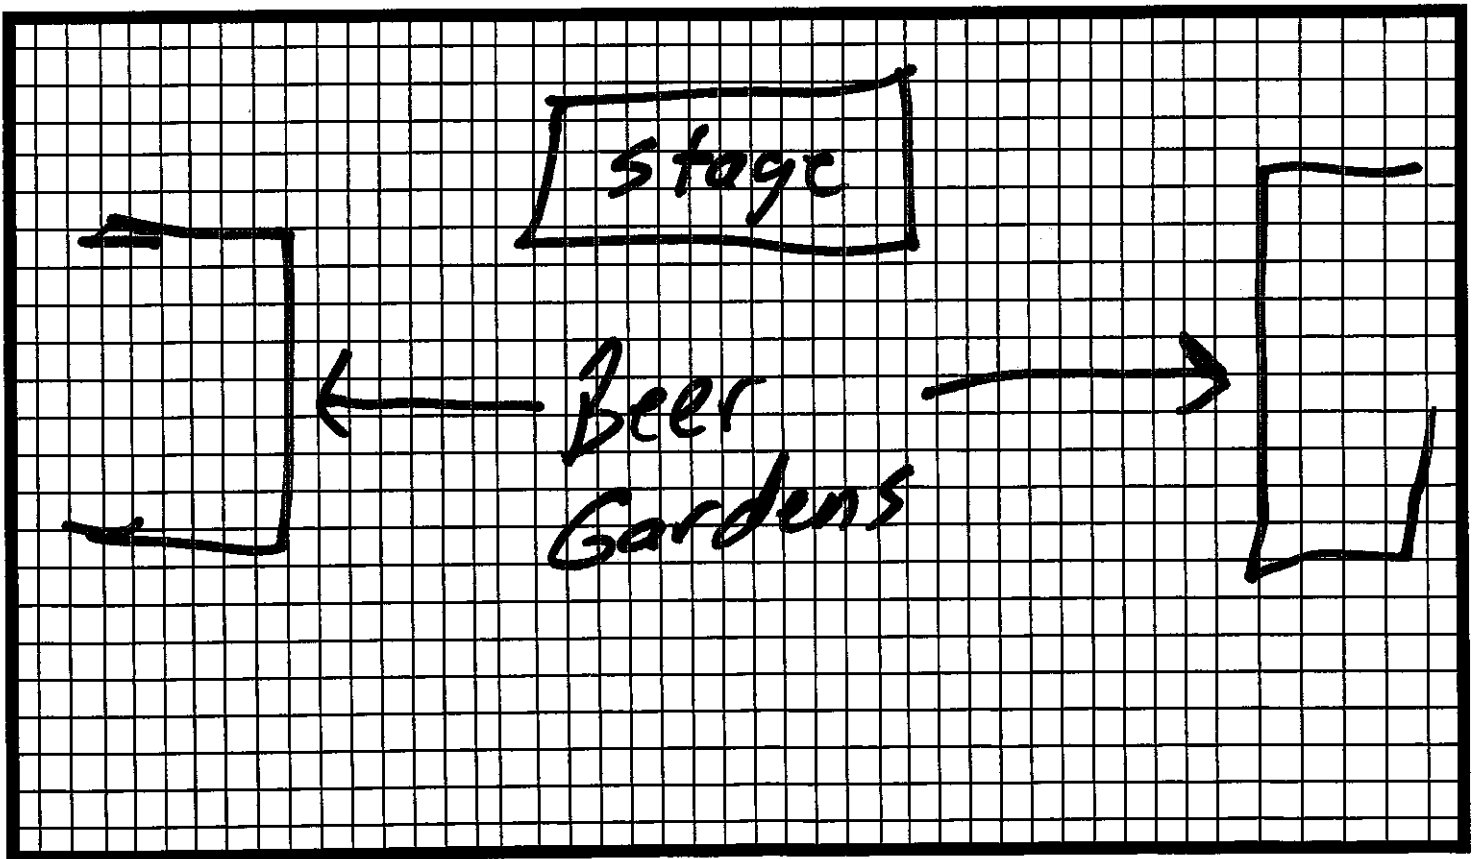 stage
Beer
Gardens